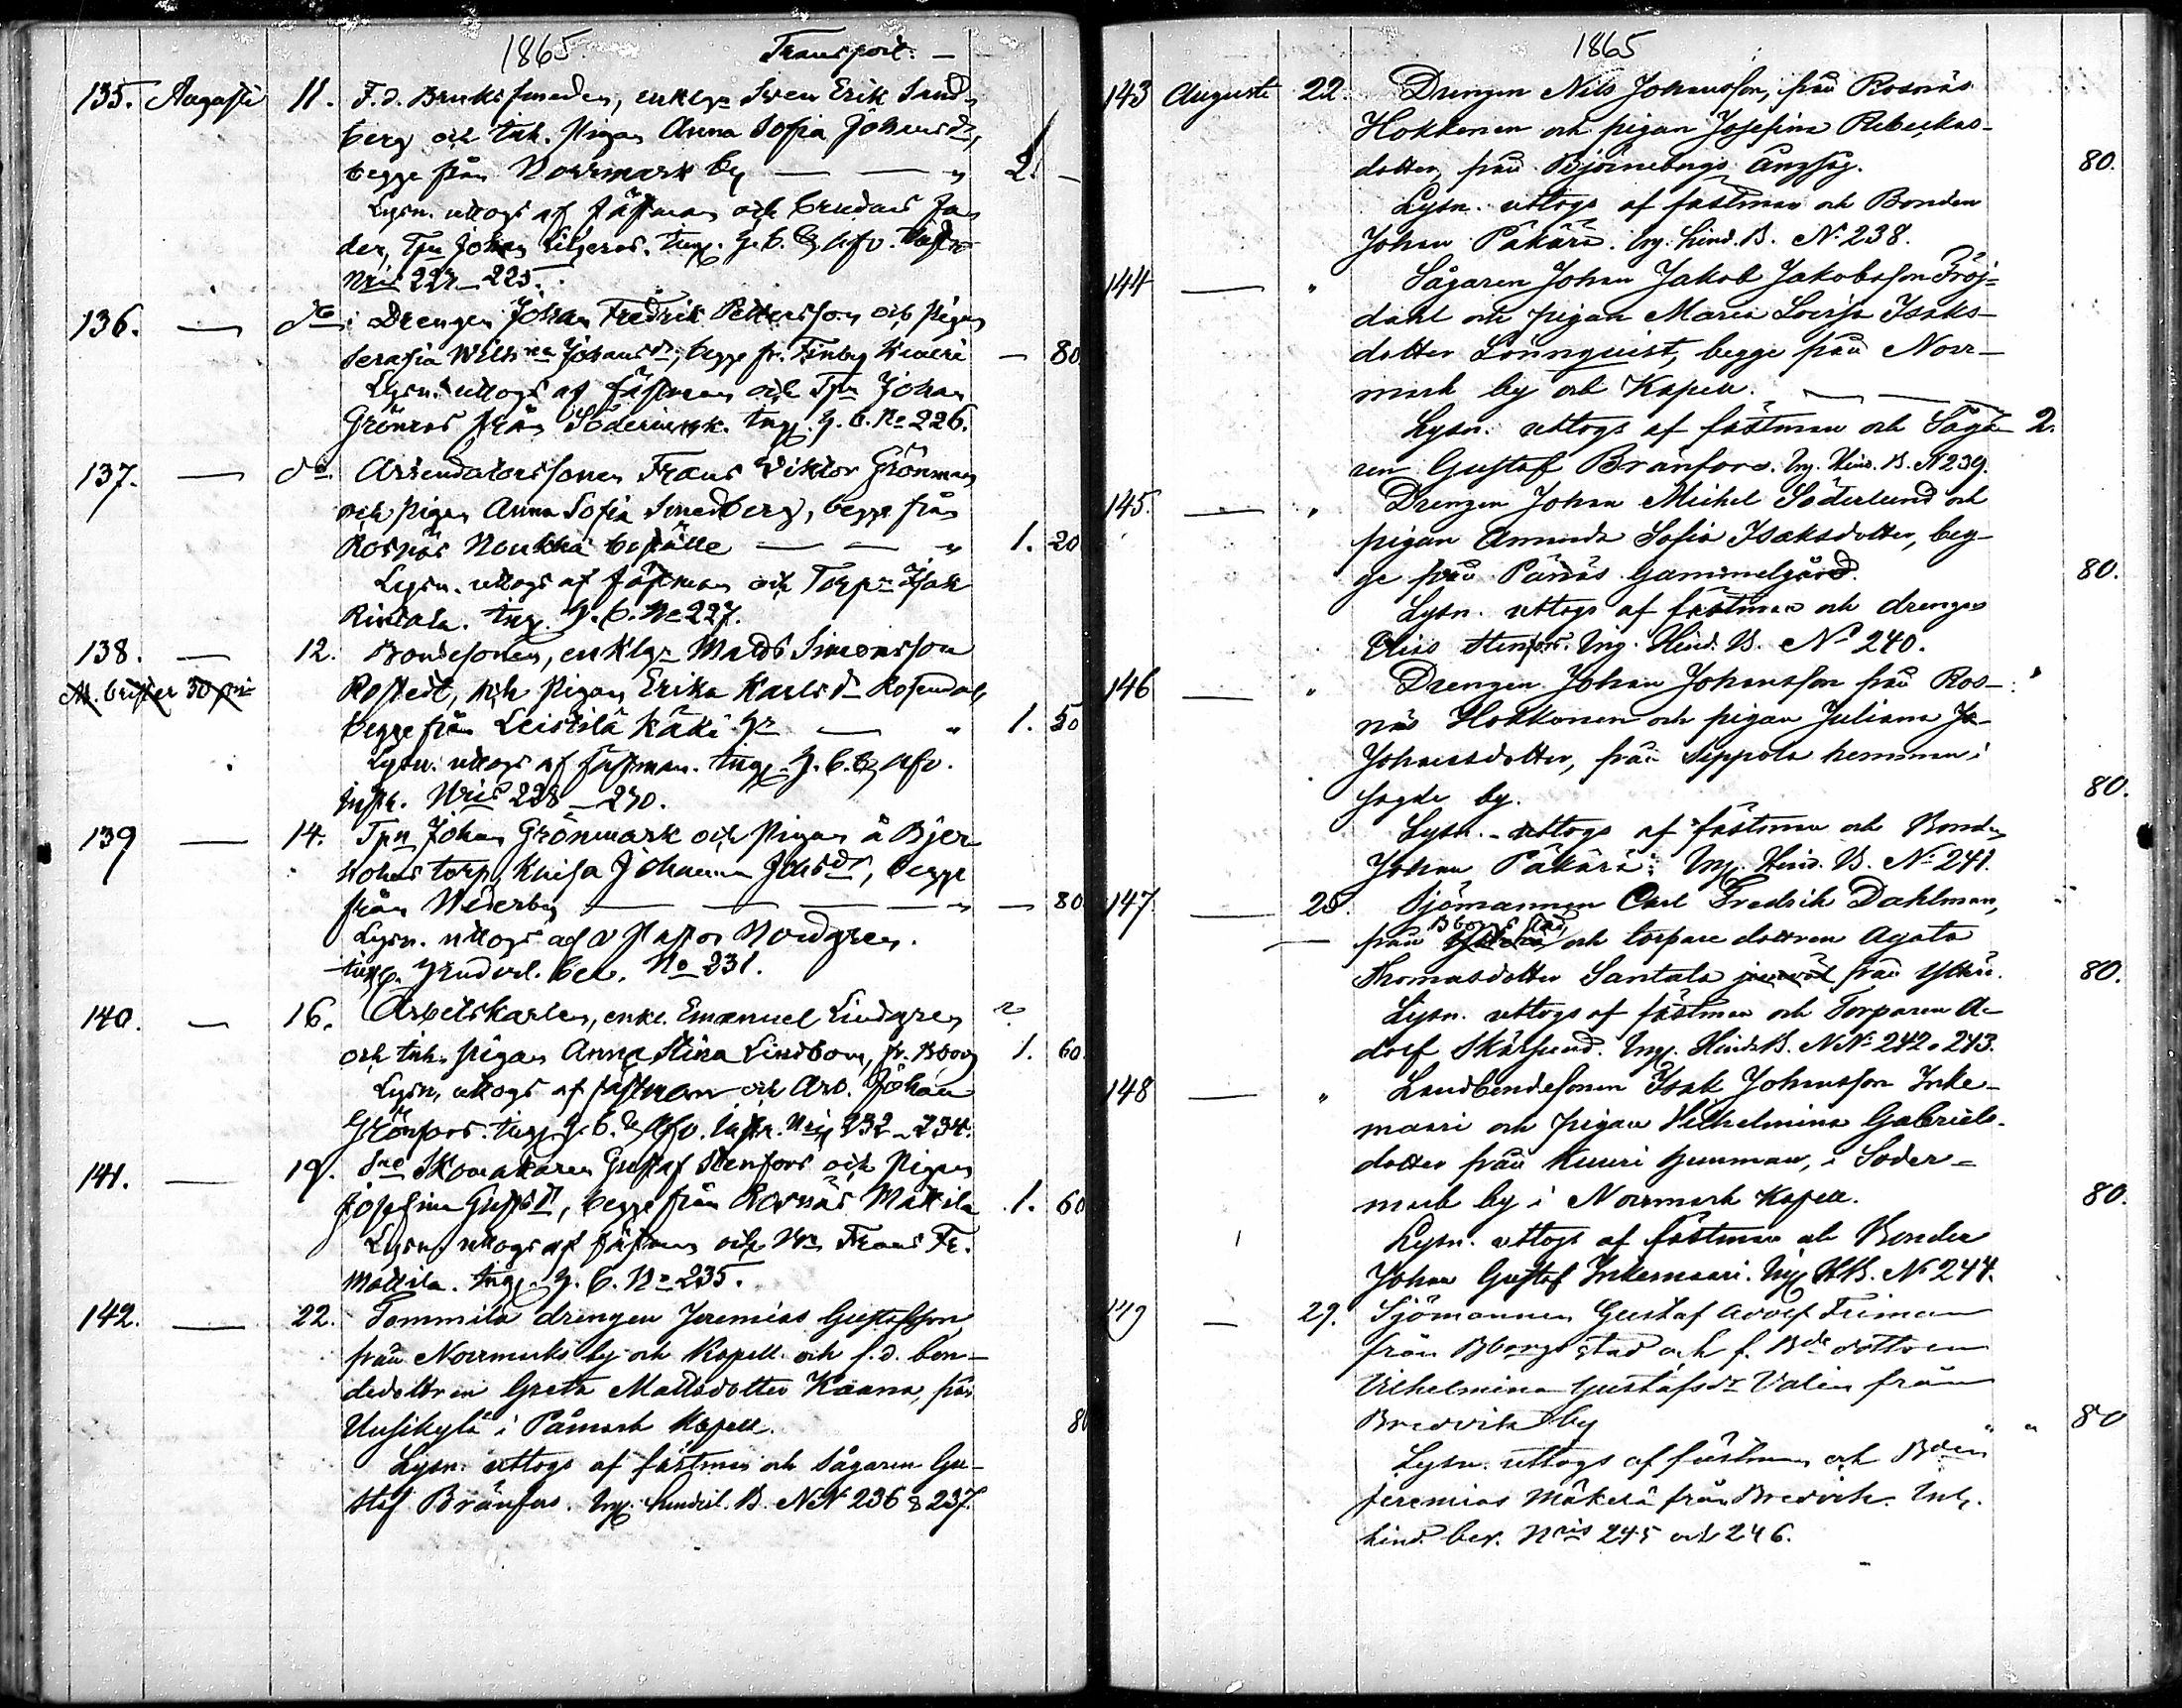 1865. Transport. —
135. Augusti 11. F.d. Bruksmeden, enkl:n Sven Erik Sand-
berg och Inh. Pigan Anna Sofia Johansdr,
begge från Norrmark by — — " 2. —
Lysn. uttogs af fästman och brudens fa-
der, Tpn Johan Liljeros. Ing.
Nris 224—225.
136. — do Drengen Johan Fredrik Pettersson och Pigan
Serafia Wilh:na Johansdr, begge fr. Finby — 80
Lysn. uttogs af fästman och Tpn Johan
Grönros från Södermark. Ing. H. B. No 226.
137. — do Arrendatorssonen Frans Viktor Grönman
och pigan Anna Sofia Smedberg, begge från
Rosnäs Noukka boställe — — " 1. 20
Lysn. uttogs af fästman och Torp:n Isak
Rintala. Ing. H. B. No 227.
138. — 12. Bondesonen, enkl:n Matts Simonsson
Rostedt, och Pigan Erika Karlsdr Rosendal,
begge från Leistilä Käki — " 1. 50
Lysn. uttogs af fästman. Ing. H. B. & Afv.
Nris 228—230.
139 — 14. Tpn Johan Grönmark och Pigan å Bjer
torp, Kaisa Johanna Johsdr, begge
från Wederby — — — " — 80
Lysn. uttogs af v Pastor Nordgren.
Ing. Hindersl. bev. No 231.
140. — 16. Arbetskarlen, enkl. Emanuel Lindgren
och Inh. pigan Anna Stina Lindbom, fr. Bborg 1. 60.
Lysn. uttogs af fästman och Arb. Johan
Grönfors. Ing. H. B. & Afv. Nris 232—234.
141. — 19. Skomakaren Gustaf Stenfors och Pigan
Josefina Gustsdr, begge från Rosnäs Mattila 1. 60
Lysn. uttogs af fästman och Frans Fr.
Mattila. Ing. H. B. No 235.
142. — 22. Tommila drengen Jeremias Gustafsson
från Norrmarks by och Kapell och f.d. bon-
dedottren Greta Mattsdotter Kaana, från
Uusikylä i Påmark Kapell. 80
Lysn. uttogs af fästman och Sågaren Gu-
staf Bränfors. Ing. hindersl. B. NN 236 & 237.
1865
143 Augusti 22. Drengen Nils Johansson, från Rosnäs
Hokkonen och pigan Josefina Rebeckas-
dotter, från Björneborgs Ångsåg. 80.
Lysn. uttogs af fästman och Bonden
Johan Päkärä. Ing. hind. B. No 238.
144 — " Sågaren Johan Jakob Jakobsson Fröj-
dahl och pigan Maria Lovisa Isaks-
dotter Lönnquist, begge från Norr-
mark by och Kapell. — — —
Lysn. uttogs af fästman och Såga- 2.
ren Gustaf Bränfors. Ing. Hind. B. No 239.
145. — " Drengen Johan Mickel Söderlund och
pigan Amanda Sofia Isaksdotter, beg-
ge från Pänäs Gammelgård. 80.
Lysn. uttogs af fästman och drengen
Stenfors. Ing. Hind. B. No 240.
146 — " Drengen Johan Johansson från Ros-
näs Hokkonen och pigan Juliana Jo-
Johansdotter, från Seppola hemman i
by. 80.
Lysn. uttogs af fästman och Bonden
Johan Päkärä. Ing. Hind. B. No 241.
147. — 28. Sjömannen Carl Fredrik Dahlman,
från Bborgs stad och torpare dottren Agata
Thomasdotter Santala från Ytterö. 80.
Lysn. uttogs af fästman och Torparen A-
dolf Skärlund. Ing. Hind. B. NNo 242 o 243.
148 — " Landbondesonen Isak Johansson Inke-
maari och pigan Vilhelmina Gabriels-
dotter från Kuuri hemman, i Söder-
mark by i Norrmark Kapell. 80.
Lysn. uttogs af fästman och Bonden
Johan Gustaf Inkemaari. Ing. H.B. No 244.
149 — 29. Sjömannen Gustaf Adolf Friman
från Bborgs stad och f. Bde dottren
Vilhelmina Gustafsdr Valin från
Bredvik by " " 80
Lysn. uttogs af fästman och Bden
Jeremias Mäkelä från Bredvik. Ing.
hind. bev. Nris 245 och 246.